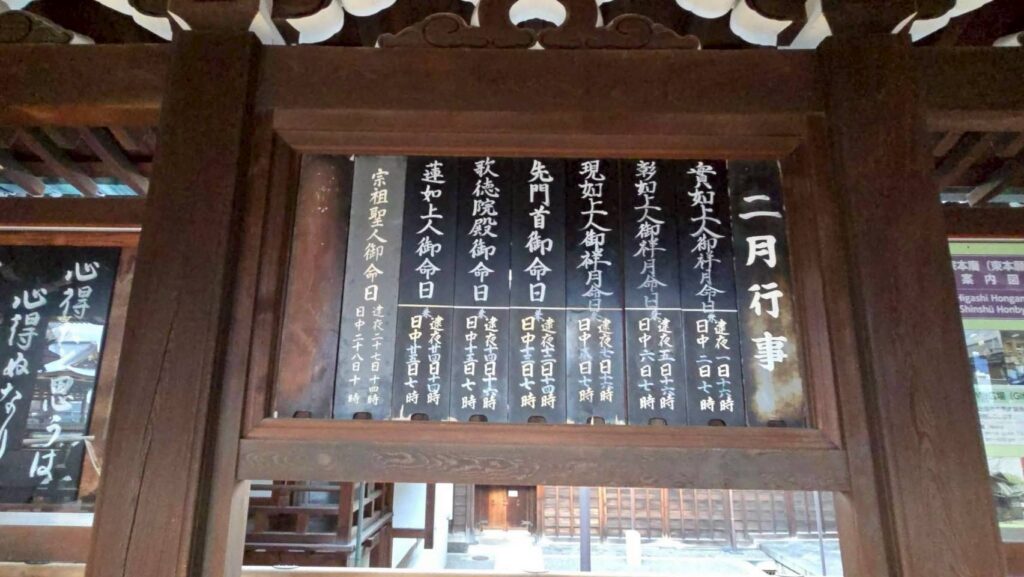 二月行事
實如上人御祥月命日
逮夜 一日十六時
日中 二日七時
彰如上人御祥月命日
逮夜 五日十六時
日中 六日七時
現如上人御祥月命日
逮夜 七日十六時
日中 八日七時
先門首御命日
逮夜十二日十四時
日中十三日七時
院殿御命日
逮夜十四日十六時
日中十五日七時
蓮如上人御命日
逮夜二十四日十四時
日中二十五日七時
宗祖聖人御命日
逮夜二十七日十四時
日中二十八日十時
心得たと思うは
心得ぬなり
本廟（東本願
案内図
Higashi Hongan
Shinshū Honby